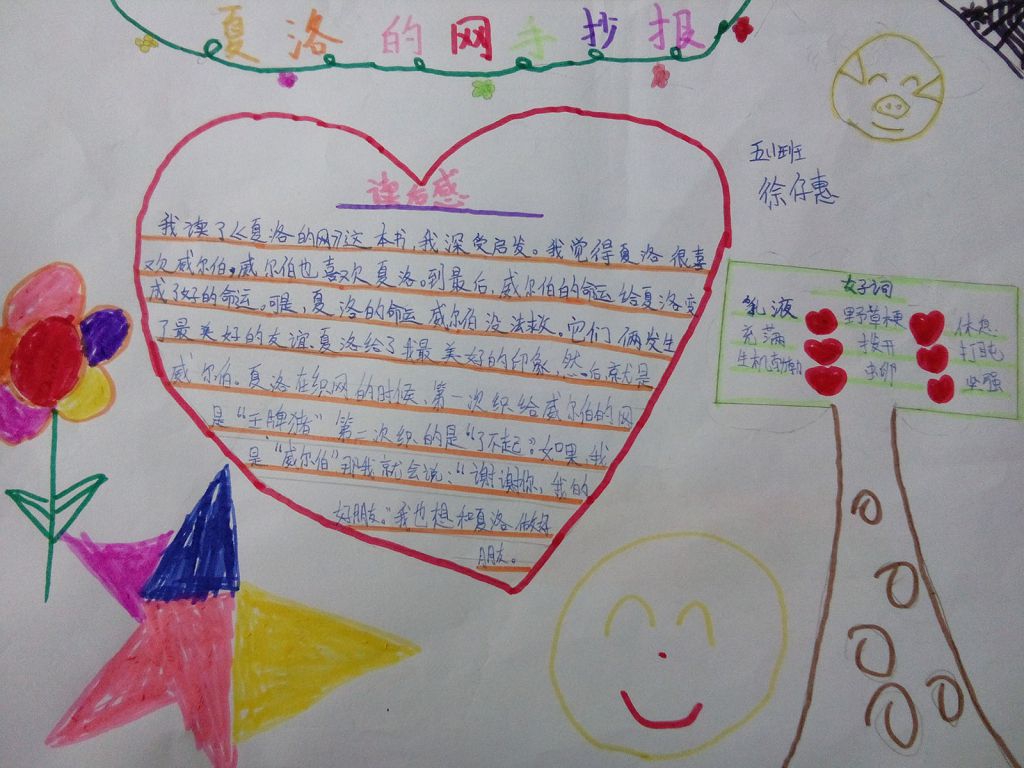 夏洛的网手抄报
五小班
徐仔惠
读后感
我读了《夏洛的网》这本书,我深受启发。我觉得夏洛很喜
欢威尔伯,威尔伯也喜欢夏洛。到最后,威尔伯的命运给夏洛变
成了好的命运。可是,夏洛的命运威尔伯没法救。它们俩发生
了最美好的友谊。夏洛给了我最美好的印象,然后就是
威尔伯。夏洛在织网的时候,第一次织给威尔伯的网
是“王牌猪”第二次织的是“了不起”。如果,我
是“威尔伯”那我就会说:“谢谢你,我的
好朋友。”我也想和夏洛做好
朋友。
好词
乳液 野草梗 休息
充满 拨开 打盹
生机勃勃 坚强